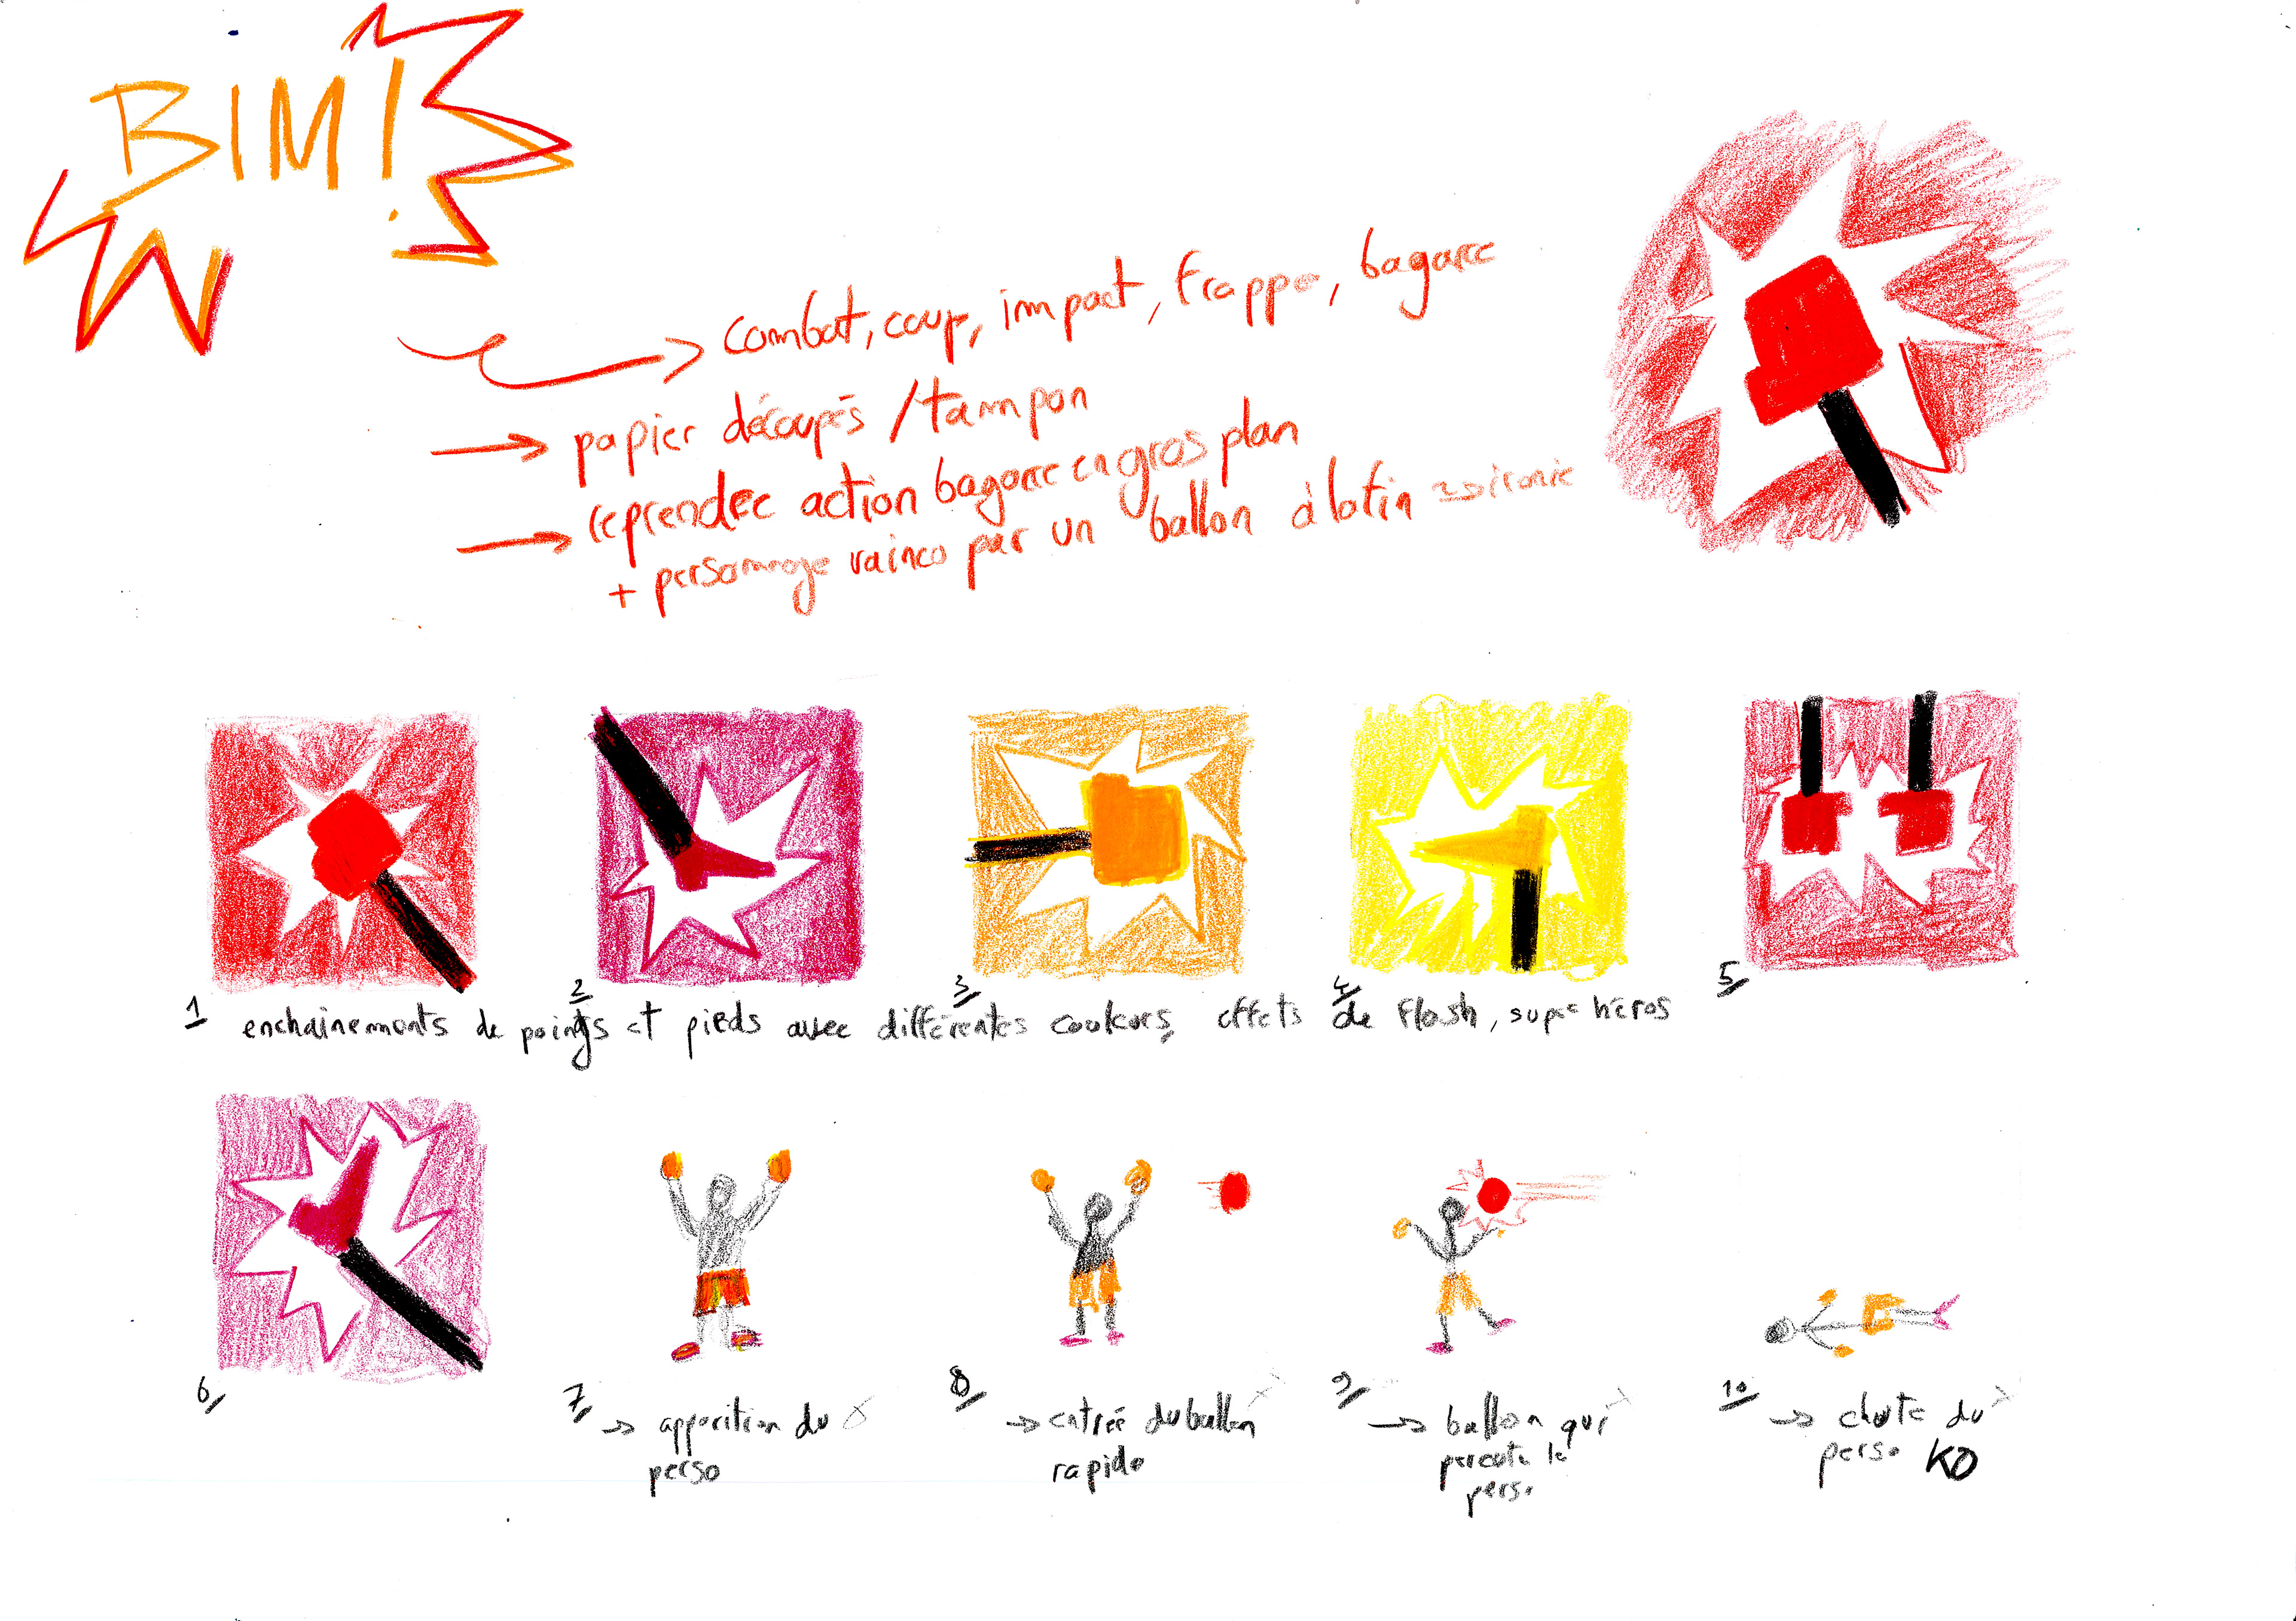 BIM!
combat, coup, impact, frappe, bagarre
papier découpés / tampon
reprendre action bagarre en gros plan
+ personnage vainco par un ballon à la fin ironie
1
2
3
4
5
enchainements de poings et pieds avec différentes couleurs, effets de flash, super héros
6
7
8
9
10
→ apparition du
perso
→ entrée du ballon
rapide
→ ballon qui
percute le
perso
→ chute du
perso KO